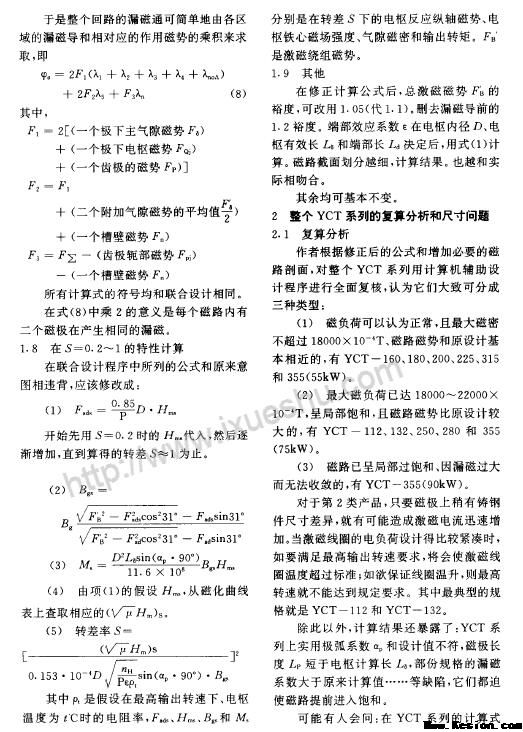 于是整个回路的漏磁通可简单地由各区
域的漏磁导和相对应的作用磁势的乘积来求
取,即
φe = 2F₁(λ₁ + λ₂ + λ₃ + λ₄ + λmoA)
+ 2F₂λ₅ + F₃λn (8)
其中,
F₁ = 2[(一个极下主气隙磁势 Fδ)
+ (一个极下电枢磁势 FQ₂)
+ (一个齿极的磁势 FP)]
F₂ = F₁
+ (二个附加气隙磁势的平均值 F'δ/2)
+ (一个槽壁磁势 Fn)
F₃ = F∑ − (齿极轭部磁势 Fpj)
− (一个槽壁磁势 Fn)
所有计算式的符号均和联合设计相同。
在式(8)中乘 2 的意义是每个磁路内有
二个磁极在产生相同的漏磁。
1.8 在 S=0.2~1 的特性计算
在联合设计程序中所列的公式和原来意
图相违背,应该修改成:
(1) Fads = 0.85/P D·Hms
开始先用 S=0.2 时的 Hms代入,然后逐
渐增加,直到算得的转差 S≈1 为止。
(2) Bgs =
Bg (√(F'B² − F²adscos²31°) − Fadssin31°)/(√(F'B² − F²adcos²31°) − Fadsin31°)
(3) Ms = D²Lδsin(αp·90°)/11.6 × 10⁸ BgsHms
(4) 由项(1)的假设 Hms,从磁化曲线
表上查取相应的(√μ Hm)s。
(5) 转差率 S=
[(√μ Hm)s/(0.153·10⁻⁴D √(nH/Pερt) sin(αp·90°)·Bgs)]²
其中 ρt 是假设在最高输出转速下、电枢
温度为 t℃时的电阻率,Fads、Hms、Bgs 和 Ms
分别是在转差 S 下的电枢反应纵轴磁势、电
枢铁心磁场强度、气隙磁密和输出转矩。FB'
是激磁绕组磁势。
1.9 其他
在修正计算公式后,总激磁磁势 FB 的
裕度,可改用 1.05(代 1.1),删去漏磁导前的
1.2 裕度。端部效应系数 ε 在电枢内径 D、电
枢有效长 Lδ 和端部长 Ld 决定后,用式(1)计
算。磁路截面划分越细,计算结果。也越和实
际相吻合。
其余均可基本不变。
2 整个 YCT 系列的复算分析和尺寸问题
2.1 复算分析
作者根据修正后的公式和增加必要的磁
路剖面,对整个 YCT 系列用计算机辅助设
计程序进行全面复核,认为它们大致可分成
三种类型:
(1) 磁负荷可以认为正常,且最大磁密
不超过 18000×10⁻⁴T、磁路磁势和原设计基
本相近的,有 YCT−160、180、200、225、315
和 355(55kW)。
(2) 最大磁负荷已达 18000~22000×
10⁻⁴T,呈局部饱和,且磁路磁势比原设计较
大的,有 YCT − 112、132、250、280 和 355
(75kW)。
(3) 磁路已呈局部过饱和、因漏磁过大
而无法收敛的,有 YCT−355(90kW)。
对于第 2 类产品,只要磁极上稍有铸钢
件尺寸差异,就有可能造成激磁电流迅速增
加。当激磁线圈的电负荷设计得比较紧凑时,
如要满足最高输出转速要求,将会使激磁线
圈温度超过标准;如欲保证线圈温升,则最高
转速就不能达到规定要求。其中最典型的规
格就是 YCT−112 和 YCT−132。
除此以外,计算结果还暴露了:YCT 系
列上实用极弧系数 αp 和设计值不符,磁极长
度 LP 短于电枢计算长 Lδ,部份规格的漏磁
系数大于原来计算值……等缺陷,它们都迫
使磁路提前进入饱和。
可能有人会问:在 YCT 系列的计算式
http://www.ixueshu.com